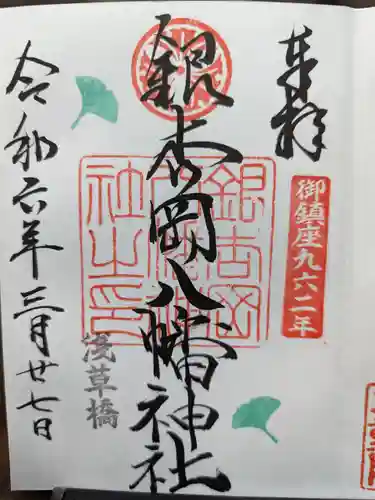 奉拝
御鎮座九六二年
銀杏岡八幡神社
浅草橋
令和六年三月廿七日